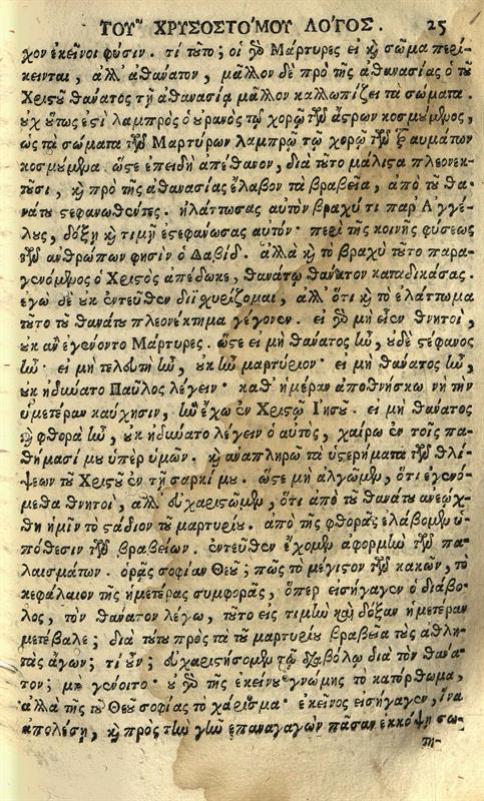 ΤΟΥ͂ ΧΡΥΣΟΣΤΟ΄ΜΟΥ ΛΟ΄ΓΟΣ. 25
χον ἐκεῖνοι φύσιν. τί τοῦτο; οἱ γὸ Μάρτυρες εἰ καὶ σῶμα περί-
κεινται, ἀλλ' ἀθάνατον, μᾶλλον δὲ πρὸ τῆς ἀθανασίας ὁ τοῦ
Χριστοῦ θάνατος τῇ ἀθανασίᾳ μᾶλλον καλλωπίζει τὰ σώματα.
οὐχ οὕτως ἐστὶ λαμπρὸς ὁ οὐρανὸς τῷ χορῷ τῶν ἄστρων κοσμούμενος,
ὡς τὰ σώματα τῶν Μαρτύρων λαμπρῷ τῷ χορῷ τῶν τραυμάτων
κοσμούμενα. ὥστε ἐπειδὴ ἀπέθανον, διὰ τοῦτο μάλιστα πλεονεκ-
τοῦσι, καὶ πρὸ τῆς ἀθανασίας ἔλαβον τὰ βραβεῖα, ἀπὸ τοῦ θα-
νάτου στεφανωθέντες. ἠλάττωσας αὐτὸν βραχύ τι παρ' Ἀγγέ-
λους, δόξῃ καὶ τιμῇ ἐστεφάνωσας αὐτόν· περὶ τῆς κοινῆς φύσεως
τῶν ἀνθρώπων φησὶν ὁ Δαβίδ. ἀλλὰ καὶ τὸ βραχὺ τοῦτο παρα-
γενόμενος ὁ Χριστὸς ἀπέδωκε, θανάτῳ θάνατον καταδικάσας.
ἐγὼ δὲ οὐκ ἐντεῦθεν διϊσχυρίζομαι, ἀλλ' ὅτι καὶ τὸ ἐλάττωμα
τοῦτο τοῦ θανάτου πλεονέκτημα γέγονεν. εἰ γὸ μὴ εἶεν θνητοὶ,
οὐκ ἂν ἐγένοντο Μάρτυρες. ὥστε εἰ μὴ θάνατος ἦν, οὐδὲ στέφανος
ἦν· εἰ μὴ τελευτὴ ἦν, οὐκ ἦν μαρτύριον· εἰ μὴ θάνατος ἦν,
οὐκ ἠδύνατο Παῦλος λέγειν· καθ' ἡμέραν ἀποθνήσκω νὴ τὴν
ὑμετέραν καύχησιν, ἣν ἔχω ἐν Χριστῷ Ἰησοῦ. εἰ μὴ θάνατος
καὶ φθορὰ ἦν, οὐκ ἠδύνατο λέγειν ὁ αὐτὸς, χαίρω ἐν τοῖς πα-
θήμασί μου ὑπὲρ ὑμῶν. καὶ ἀναπληρῶ τὰ ὑστερήματα τῶν θλί-
ψεων τοῦ Χριστοῦ ἐν τῇ σαρκί μου. ὥστε μὴ ἀλγῶμεν, ὅτι ἐγενό-
μεθα θνητοὶ, ἀλλ' εὐχαριστῶμεν, ὅτι ἀπὸ τοῦ θανάτου ἀνεῴχ-
θη ἡμῖν τὸ στάδιον τοῦ μαρτυρίου. ἀπὸ τῆς φθορᾶς ἐλάβομεν ὑ-
πόθεσιν τῶν βραβείων. ἐντεῦθεν ἔχομεν ἀφορμὴν τῶν πα-
λαισμάτων. ὁρᾷς σοφίαν Θεοῦ; πῶς τὸ μέγιστον τῶν κακῶν, τὸ
κεφάλαιον τῆς ἡμετέρας συμφορᾶς, ὅπερ εἰσήγαγεν ὁ διάβο-
λος, τὸν θάνατον λέγω, τοῦτο εἰς τιμὴν καὶ δόξαν ἡμετέραν
μετέβαλε; διὰ τούτου πρὸς τὰ τοῦ μαρτυρίου βραβεῖα τοὺς ἀθλη-
τὰς ἄγων; τί οὖν; εὐχαριστήσομεν τῷ διαβόλῳ διὰ τὸν θάνα-
τον; μὴ γένοιτο· οὐ γὸ τῆς ἐκείνου γνώμης τὸ κατόρθωμα,
ἀλλὰ τῆς τοῦ Θεοῦ σοφίας τὸ χάρισμα· ἐκεῖνος εἰσήγαγεν, ἵνα
ἀπολέσῃ, καὶ πρὸς τὴν γῆν ἐπαναγαγὼν πᾶσαν ἐκκόψῃ σω-
τη-